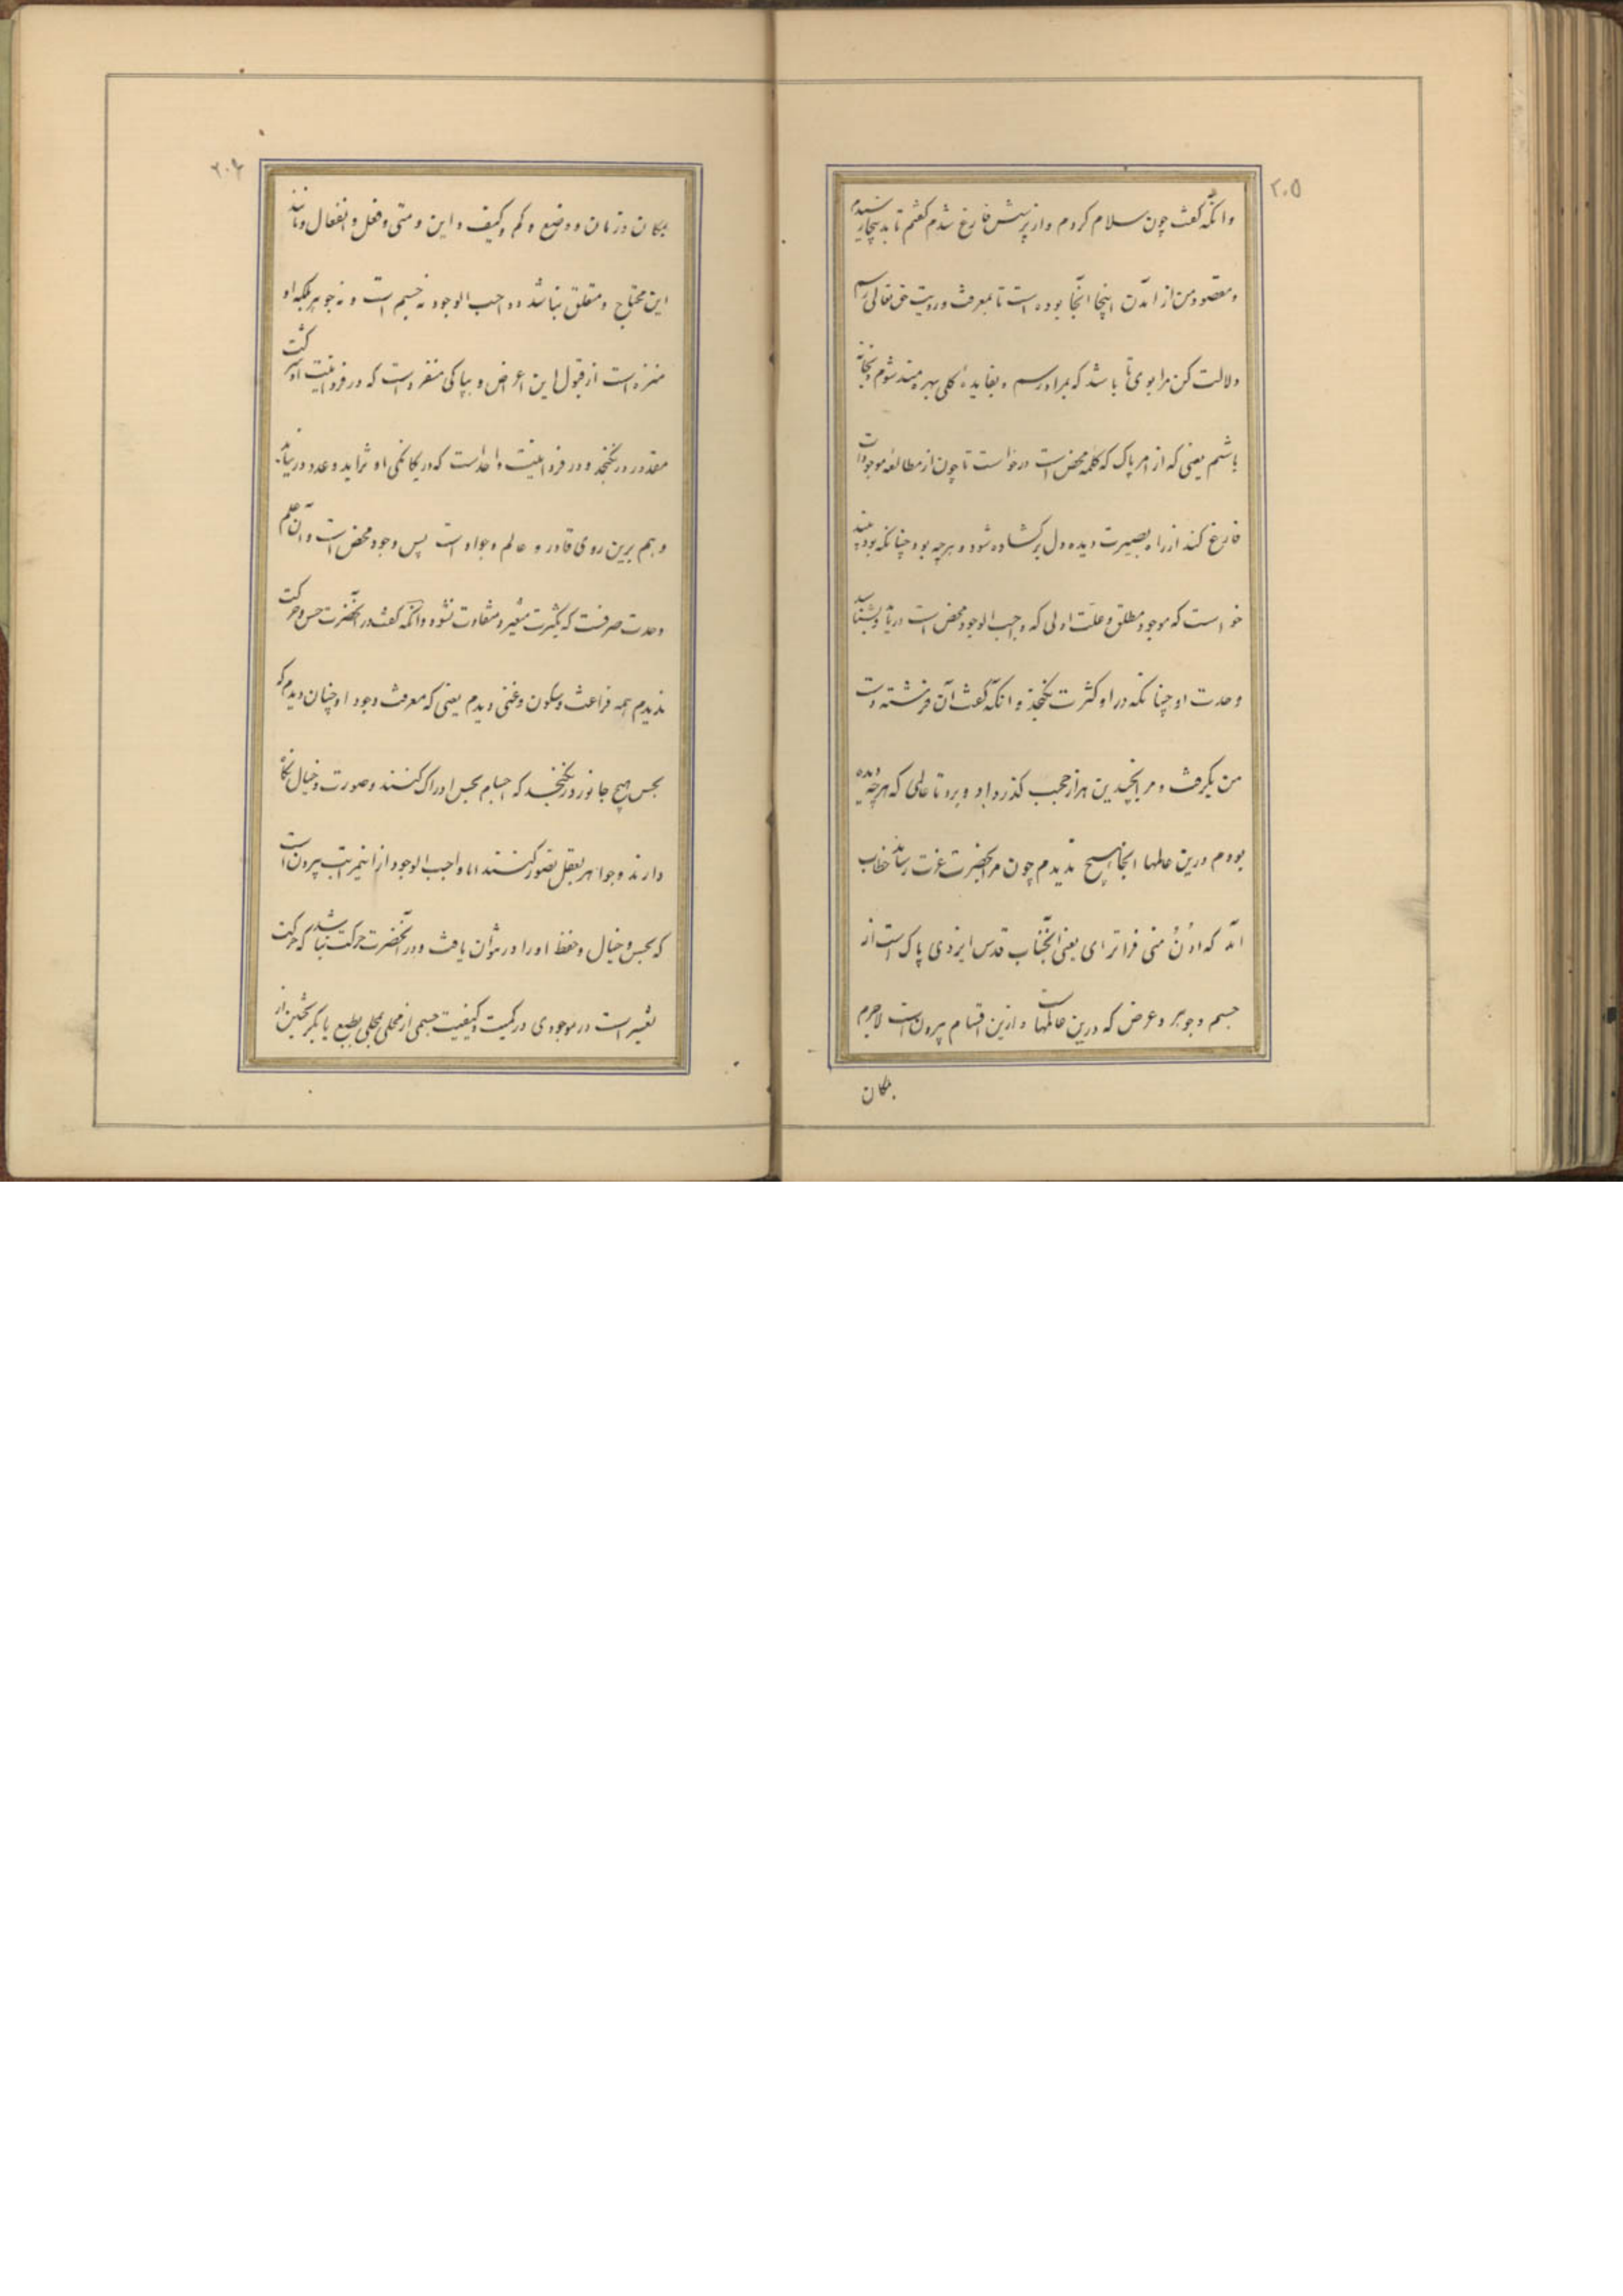 ۲۰۵
وانکه گفت چون سلام کردم و از پرسش فارغ شدم گفتم تا بدینجا رسیدم
و مقصود من از آمدن اینجا آنجا بوده است تا بمعرفت و رویت حق تعالی رسم
دلالت کن مرا بوی تا باشد که بمراد رسم و بفایدهٔ کلی بهره مند شوم و بخانه
باشم یعنی که از امر پاک که کلمه محض است درخواست تا چون از مطالعه موجودات
فارغ کند از راه بصیرت دیده دل برگشاده شود و هرچه بود چنانکه بود بیند
خواست که موجود مطلق و علت اولی که واجب الوجود محض است دریابد و بشناسد
وحدت او چنانکه در او کثرت نگنجد و انکه گفت آن فرشته دست
من بگرفت و مرا بچندین هزار حجب گذر داد و ببرد تا عالمی که هرچه دیده
بودم درین عالمها آنجا هیچ ندیدم چون مرا بحضرت عزت رساند خطاب
آمد که ادن منی فراتر ای یعنی آنجناب قدس ایزدی پاک است از
جسم و جوهر و عرض که درین عالمهاست و ازین اقسام بیرون است لاجرم
بمکان
۲۰۶
بمکان و زمان و وضع و کم و کیف و این و متی و فعل و انفعال و مانند
این محتاج و متعلق نباشد و واجب الوجود نه جسم است و نه جوهر بلکه او
منزه است از قبول این اعراض و بپاکی منفرد است که در فردانیت او شرکت
مقدور در نگنجد و در فردانیت واحد است که در یگانگی او تزاید و عدد در نیاید
و هم برین روی قادر و عالم و جواد است پس وجود محض است و آن علم
وحدت صرفست که بکثرت متغیر و متفاوت نشود و آنکه گفت در آنحضرت حس و حرکت
ندیدم همه فراغت و سکون و غنی دیدم یعنی که معرفت وجود او چنان دیدم که
بحس هیچ جانور در نگنجد که اجسام بحس ادراک کنند و صورت و خیال نگاه
دارند و جواهر بعقل تصور کنند اما واجب الوجود از این مراتب بیرون است
که بحس و خیال و حفظ او را در نتوان یافت و در آنحضرت حرکت نباشد که حرکت
تغییر است در موجودی در کمیت و کیفیت جسمی از محلی بمحلی بطبع یا